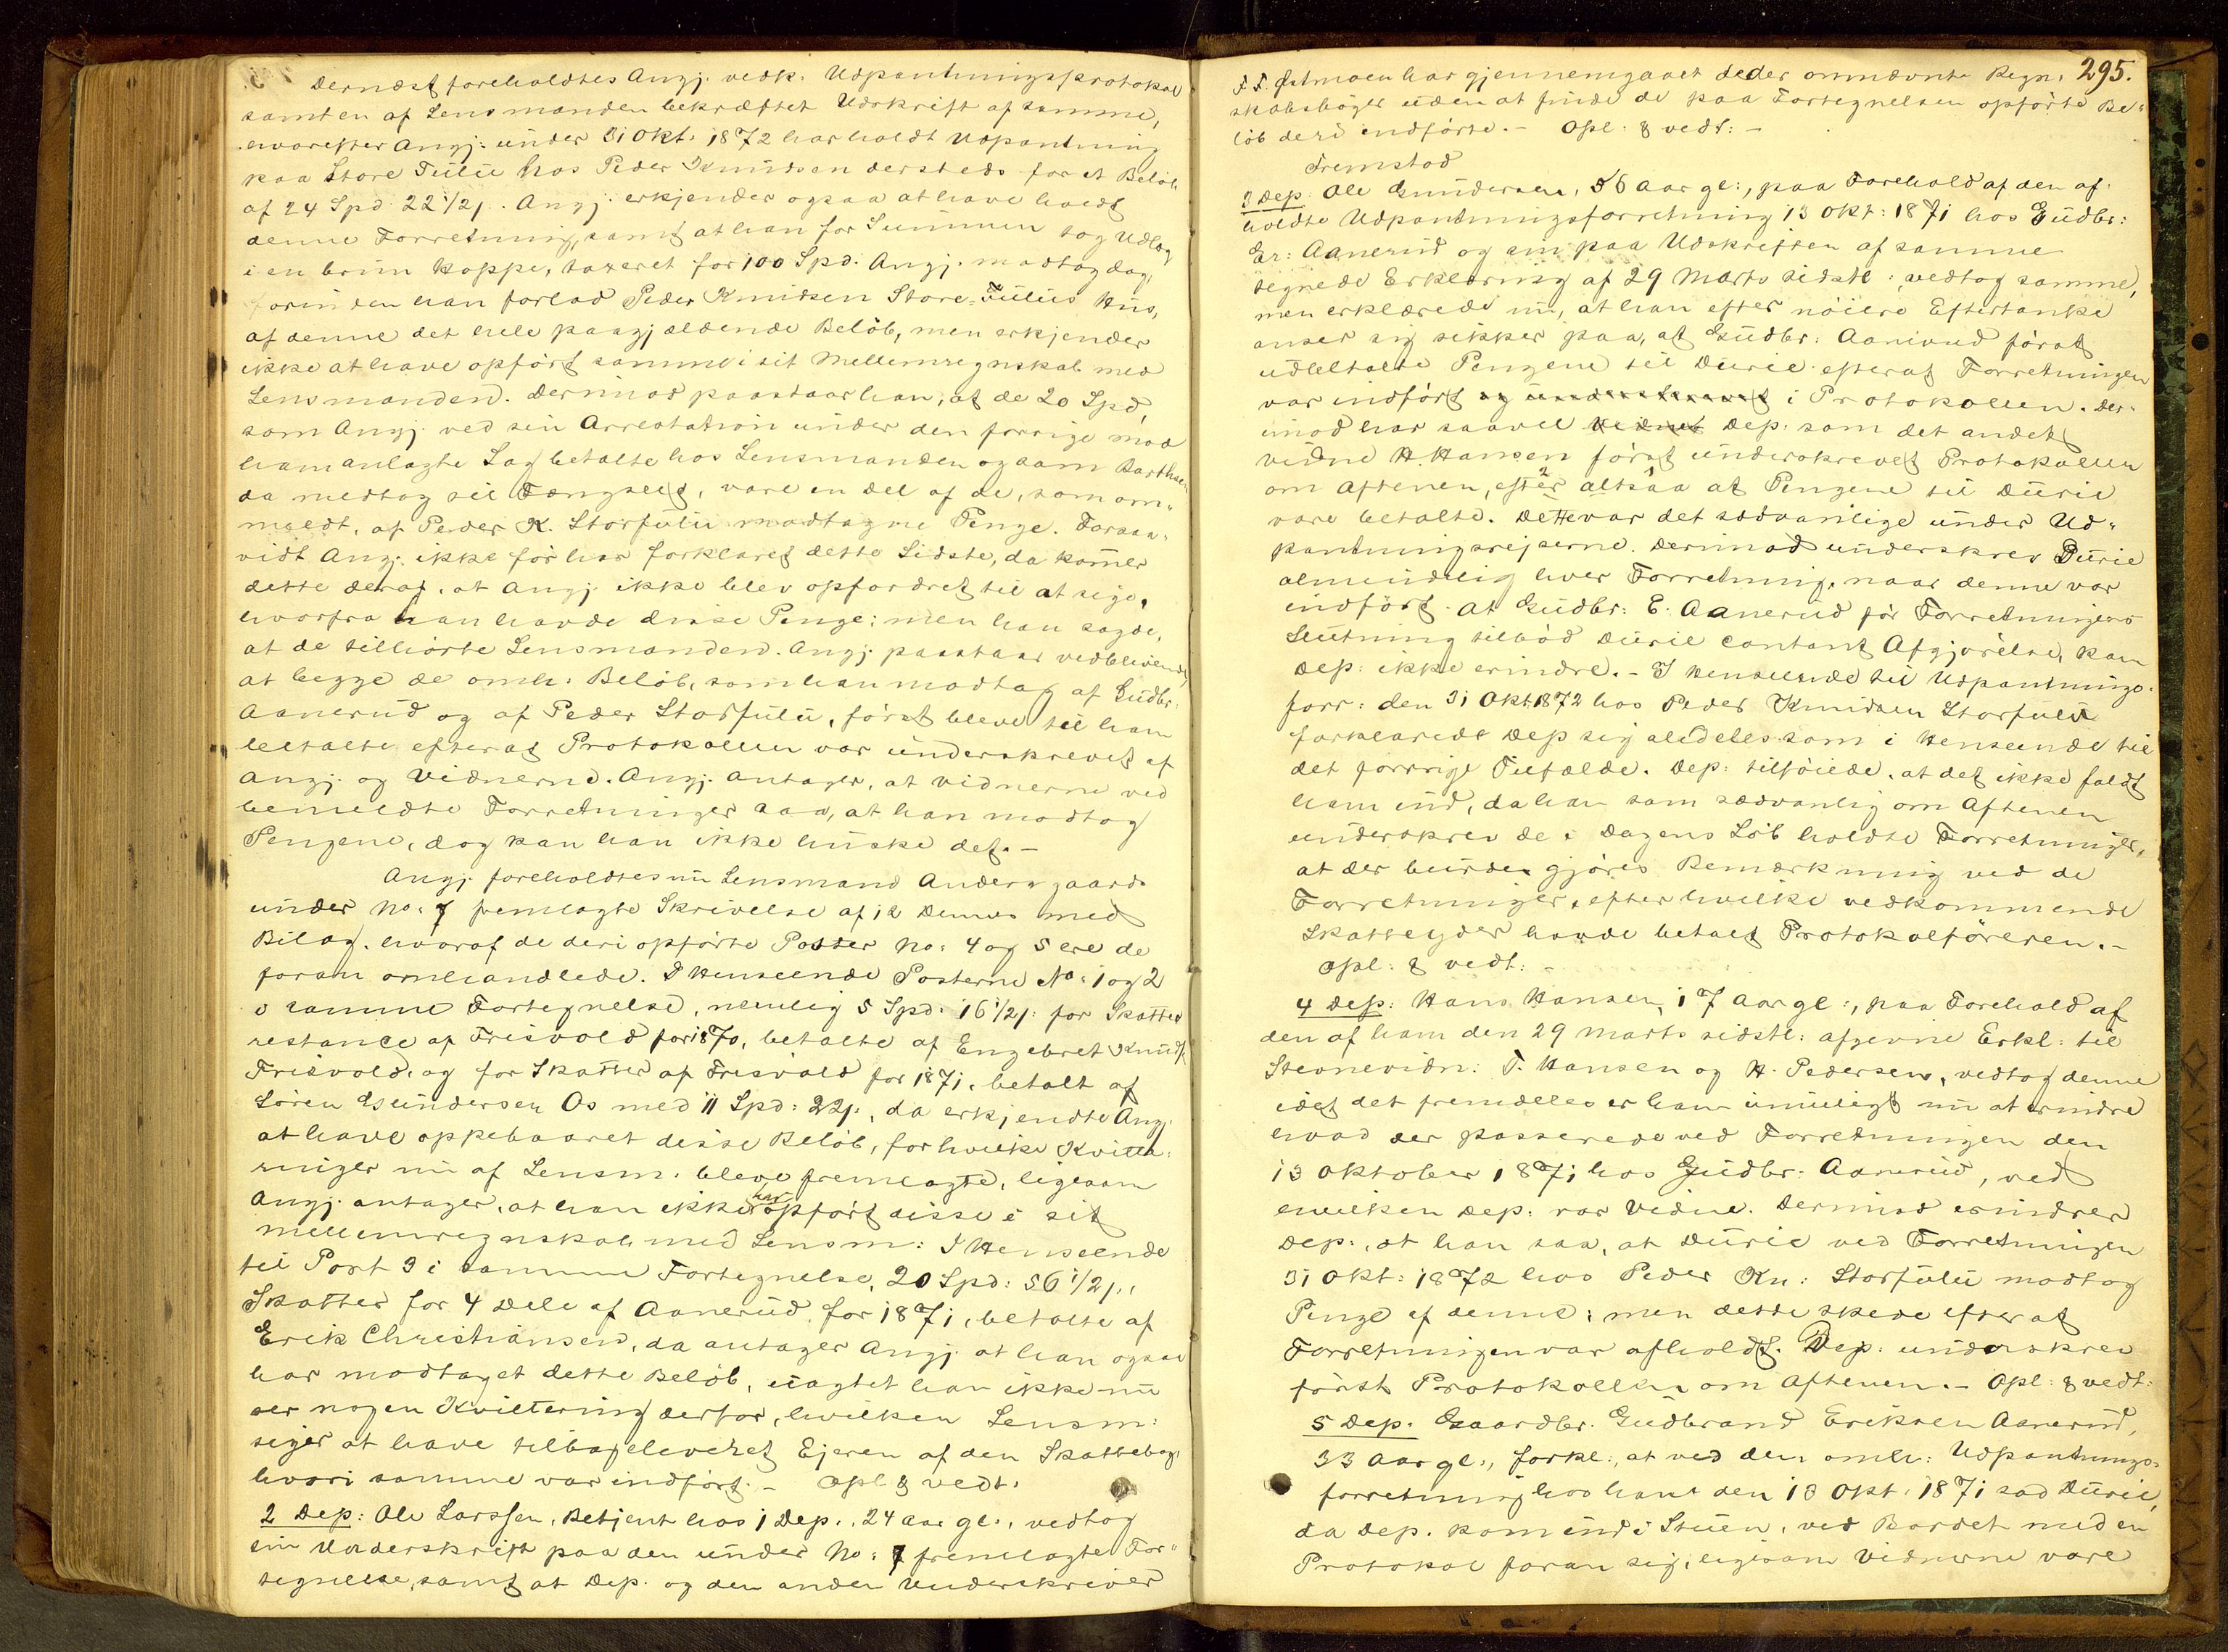 Dernæst foreholdtes Angj. vedk. Udpantningsprotokol
samt en af Lensmanden bekræftet Udskrift af samme,
hvorefter Angj: under 31 Okt. 1872 har holdt Udpantning
paa Store Fulu hos Peder Knudsen dersteds for et Beløb
af 24 Spd 22 1/2 ſ. Angj. erkjender ogsaa at have holdt
denne Forretning, samt at han for Summen tog Udlæg
i en brun Hoppe, taxeret for 100 Spd. Angj. modtog dog,
forinden han forlod Peder Knudsen Store-Fulus Hus,
af denne det hele paagjældende Beløb, men erkjender
ikke at have opført samme i sit Mellemregnskab med
Lensmanden. Derimod paastaar han, at de 20 Spd,
som Angj. ved sin Arrestation under den forrige mod
ham anlagte Sag betalte hos Lensmanden og som
da medtog til Fængslet, vare en Del af de, som om-
meldt, af Peder K. Storfulu modtagne Penge. Forsaa-
vidt Angj. ikke før har forklaret dette Sidste, da kom̃er
dette deraf, at Angj. ikke blev opfordret til at sige,
hvorfra han havde disse Penge; men han sagde,
at de tilhørte Lensmanden. Angj. paastaar vedblivende,
at begge de omh. Beløb, som han modtog af Gudbr.
Aanerud og af Peder Storfulu, først bleve til ham
betalte efterat Protokollen var underskrevet af
Angj. og Vidnerne. Angj. antager, at Vidnerne ved
bemeldte Forretninger saa, at han modtog
Pengene, dog kan han ikke huske det. -
Angj. foreholdtes nu Lensmand Andersgaards
under No: 7 fremlagte Skrivelse af 12 Dennes med
Bilag, hvoraf de deri opførte Poster No: 4 og 5 ere de
foran omhandlede. I Henseende Posterne No: 1 og 2
i samme Fortegnelse, nemlig 5 Spd: 16 1/2 ſ: for Skatte
restance af Frisvold for 1870, betalte af Engebret Knuds.
Frisvold, og for Skatter af Frisvold for 1871, betalt af
Søren Gundersen Os med 11 Spd: 22 ſ., da erkjendte Angj.
at have oppebaaret disse Beløb, for hvilke Kvitte-
ringer nu af Lensm. bleve fremlagte, ligesom
Angj. antager, at han ikke har opført disse i sit
Mellemregnskab med Lensm: I Henseende
til Post 3 i samme Fortegnelse, 20 Spd: 56 1/2 ſ.,
Skatter for 4 Dele af Aanerud for 1871, betalte af
Erik Christiansen, da antager Angj. at han ogsaa
har modtaget dette Beløb, uagtet han ikke nu
ser nogen Kvittering derfor, hvilken Lensm:
siger at have tilbageleveret Ejeren af den Skattebog,
hvori samme var indført. - Opl. & vedt.
2 Dep: Ole Larssen, Betjent hos 1 Dep., 24 Aar gl., vedtog
sin Underskrift paa den under No: 7 fremlagte For-
tegnelse, samt at Dep. og den anden Underskriver
295.
F. F. Østmoen har gjennemgaaet de der omnævnte Regn-
skabsbøger uden at finde de paa Fortegnelsen opførte Be-
løb deri indførte. - Opl: & vedt: -
Fremstod
3 Dep: Ole Gundersen, 56 Aar gl:, paa Forehold af den af-
holdte Udpantningsforretning 13 Okt: 1871 hos Gudbr:
Er: Aanerud og sin paa Udskriften af samme
tegnede Erklæring af 29 Marts sidstl:, vedtog samme,
men erklærede nu, at han efter nøiere Eftertanke
anser sig sikker paa, at Gudbr: Aanerud først
udbetalte Pengene til Durie efterat Forretningen
var indført og underskrevet i Protokollen. Der-
imod har saavel Vidnet Dep. som det andet
Vidne H. Hansen først underskrevet Protokollen
om Aftenen, efter altsaa at Pengene til Durie
vare betalte. Dette var det sædvanlige under Ud-
pantningsrejserne. Derimod underskrev Durie
almindelig hver Forretning, naar denne var
indført. At Gudbr: E. Aanerud før Forretningens
Slutning tilbød Durie contant Afgjørelse, kan
Dep: ikke erindre. - I Henseende til Udpantnings-
forr: den 31 Okt. 1872 hos Peder Knudsen Storfulu
forklarede Dep sig aldeles som i Henseende til
det forrige Tilfælde. Dep: tilføiede, at det ikke faldt
ham ind, da han som sædvanlig om Aftenen
underskrev de i Dagens Løb holdte Forretninger,
at der burde gjøres Bemærkning ved de
Forretninger, efter hvilke vedkommende
Skatteyder havde betalt Protokolføreren. -
Opl: & vedt: -
4 Dep: Hans Hansen, 17 Aar gl:, paa Forehold af
den af ham den 29 Marts sidstl: afgivne Erkl: til
Stevnevidn: T. Hansen og H. Pedersen, vedtog denne
idet det fremdeles er ham umuligt nu at erindre
hvad der passerede ved Forretningen den
13 Oktober 1871 hos Gudbr: Aanerud, ved
hvilken Dep: var Vidne. Derimod erindrer
Dep:, at han saa, at Durie ved Forretningen
31 Okt: 1872 hos Peder Kn: Storfulu modtog
Penge af denne; men dette skede efterat
Forretningen var afholdt. Dep: underskrev
først Protokollen om Aftenen. - Opl: & vedt:
5 Dep. Gaardbr. Gudbrand Eriksen Aanerud,
33 Aar gl:, forkl:, at ved den omh: Udpantnings-
forretning hos ham den 13 Okt. 1871 sad Durie,
da Dep. kom ind i Stuen, ved Bordet med en
Protokol foran sig, ligesom Vidnerne vare